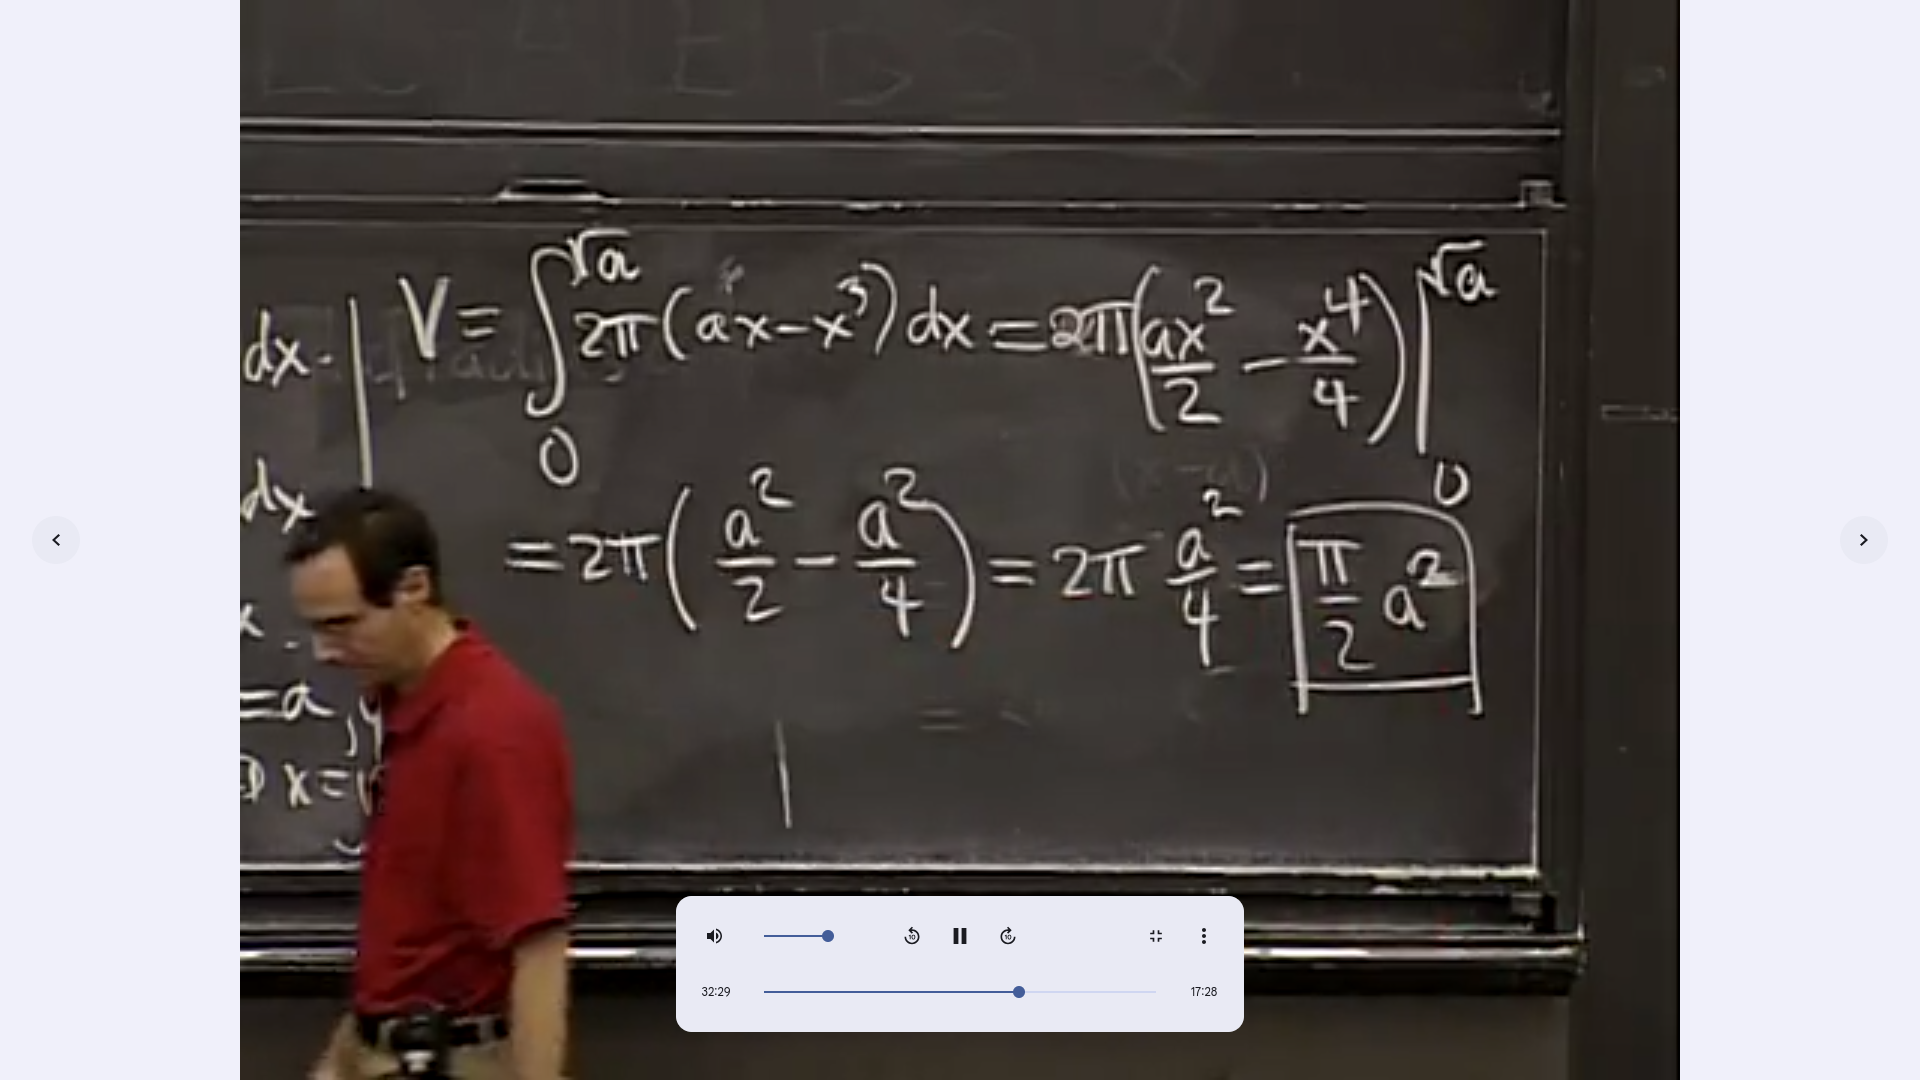 dx.
V = ∫₀^√a 2π(ax − x³) dx = 2π(ax²/2 − x⁴/4) |₀^√a
dx
= 2π(a²/2 − a²/4) = 2π a²/4 = π/2 a²
x.
=a, y
x=
32:29
17:28